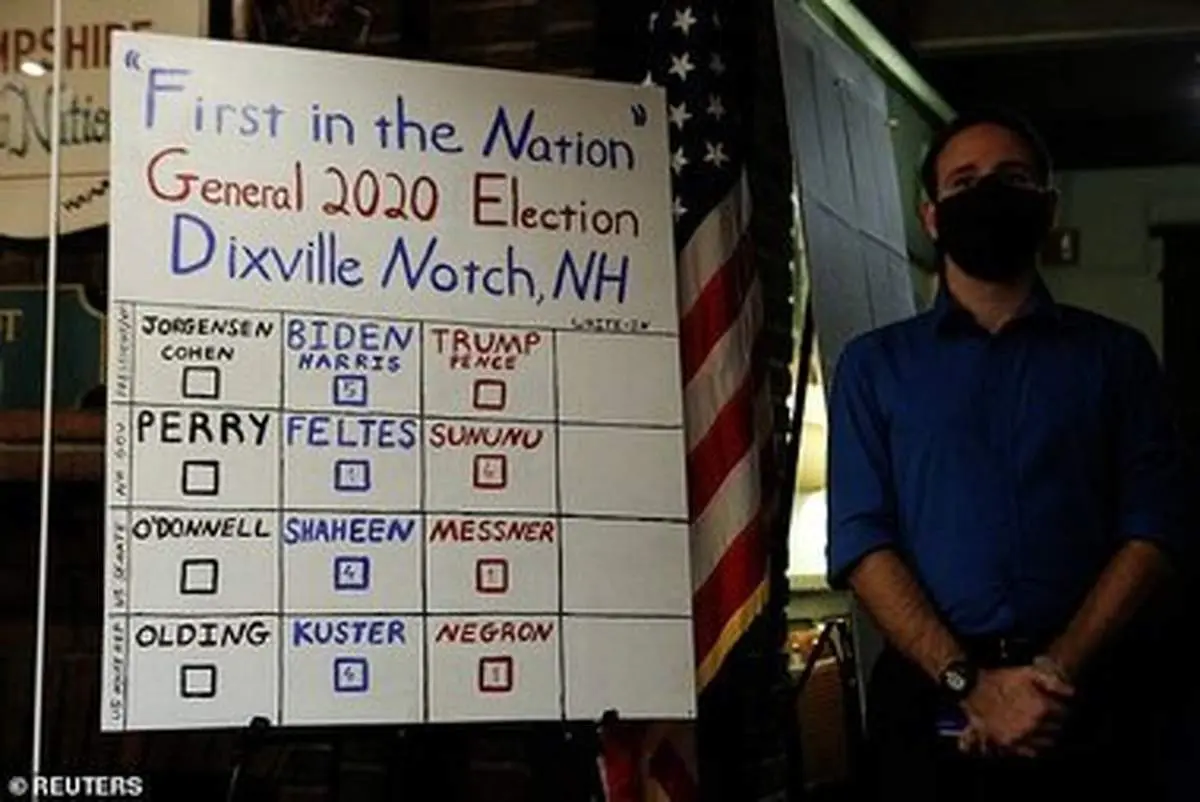 "First in the Nation"
General 2020 Election
Dixville Notch, NH
WRITE-IN
JORGENSEN COHEN BIDEN HARRIS 5 TRUMP PENCE
NH GOV PERRY FELTES 1 SUNUNU 4
US SENATE O'DONNELL SHAHEEN 4 MESSNER 1
US HOUSE REP OLDING KUSTER 4 NEGRON 1
© REUTERS